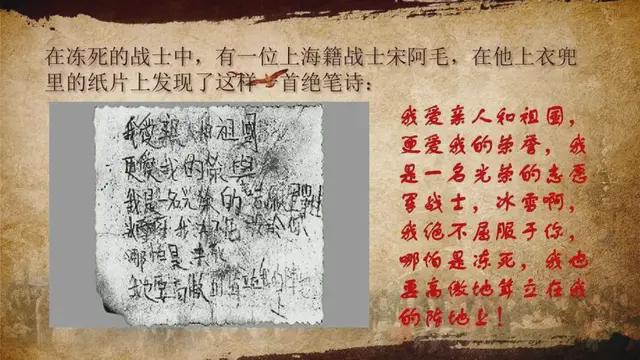 在冻死的战士中，有一位上海籍战士宋阿毛，在他上衣兜
里的纸片上发现了这样一首绝笔诗：
我爱亲人和祖国
更爱我的荣誉
我是一名光荣的志愿军战士
冰雪啊 我决不屈服于你
哪怕是冻死
我也要高傲的耸立在我的阵地上
我爱亲人和祖国，
更爱我的荣誉，我
是一名光荣的志愿
军战士，冰雪啊，
我绝不屈服于你，
哪怕是冻死，我也
要高傲地耸立在我
的阵地上！